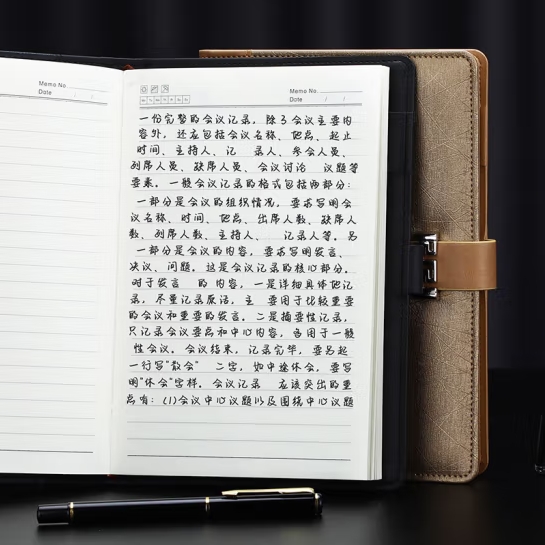 Memo No.
Date / /
Memo No.
Date / /
一份完整的会议记录，除了会议主要内
容外，还应包括会议名称、地点、起止
时间、主持人、记 录人、参会人员、
列席人员、缺席人员、会议讨论 议题等
要素。一般会议记录的格式包括两部分：
一部分是会议的组织情况，要求写明会
议名称、时间、地点、出席人数、缺席人
数、列席人数、主持人、 记录人等。另
一部分是会议的内容，要求写明发言、
决议、问题。这是会议记录的核心部分。
对于发言 的内容，一是详细具体地记
录，尽量记录原话，主 要用于比较重要
的会议和重要的发言。二是摘要性记录，
只记录会议要点和中心内容，多用于一般
性会议。会议结束，记录完毕，要另起
一行写"散会" 二字，如中途休会，要写
明"休会"字样。会议记录 应该突出的重
点有：(1)会议中心议题以及围绕中心议题